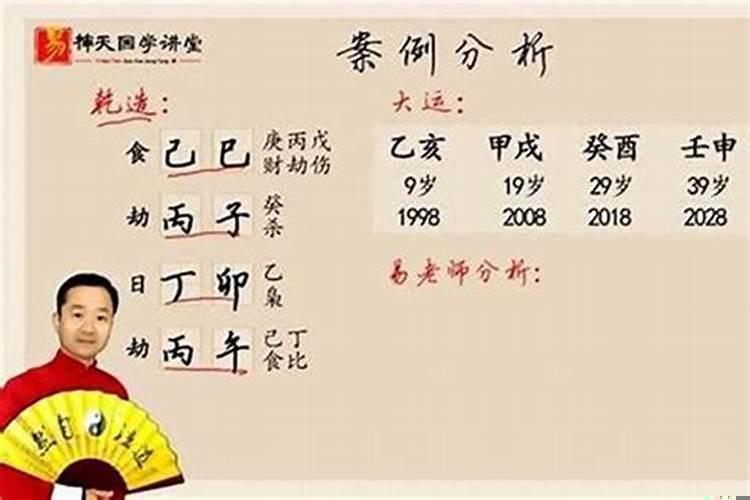 易 禅天国学讲堂
案例分析
乾造:
食 己巳 庚丙戊
财劫伤
劫 丙子 癸
杀
日 丁卯 乙
枭
劫 丙午 己丁
食比
大运:
乙亥 甲戌 癸酉 壬申
9岁 19岁 29岁 39岁
1998 2008 2018 2028
易老师分析:
然自法道